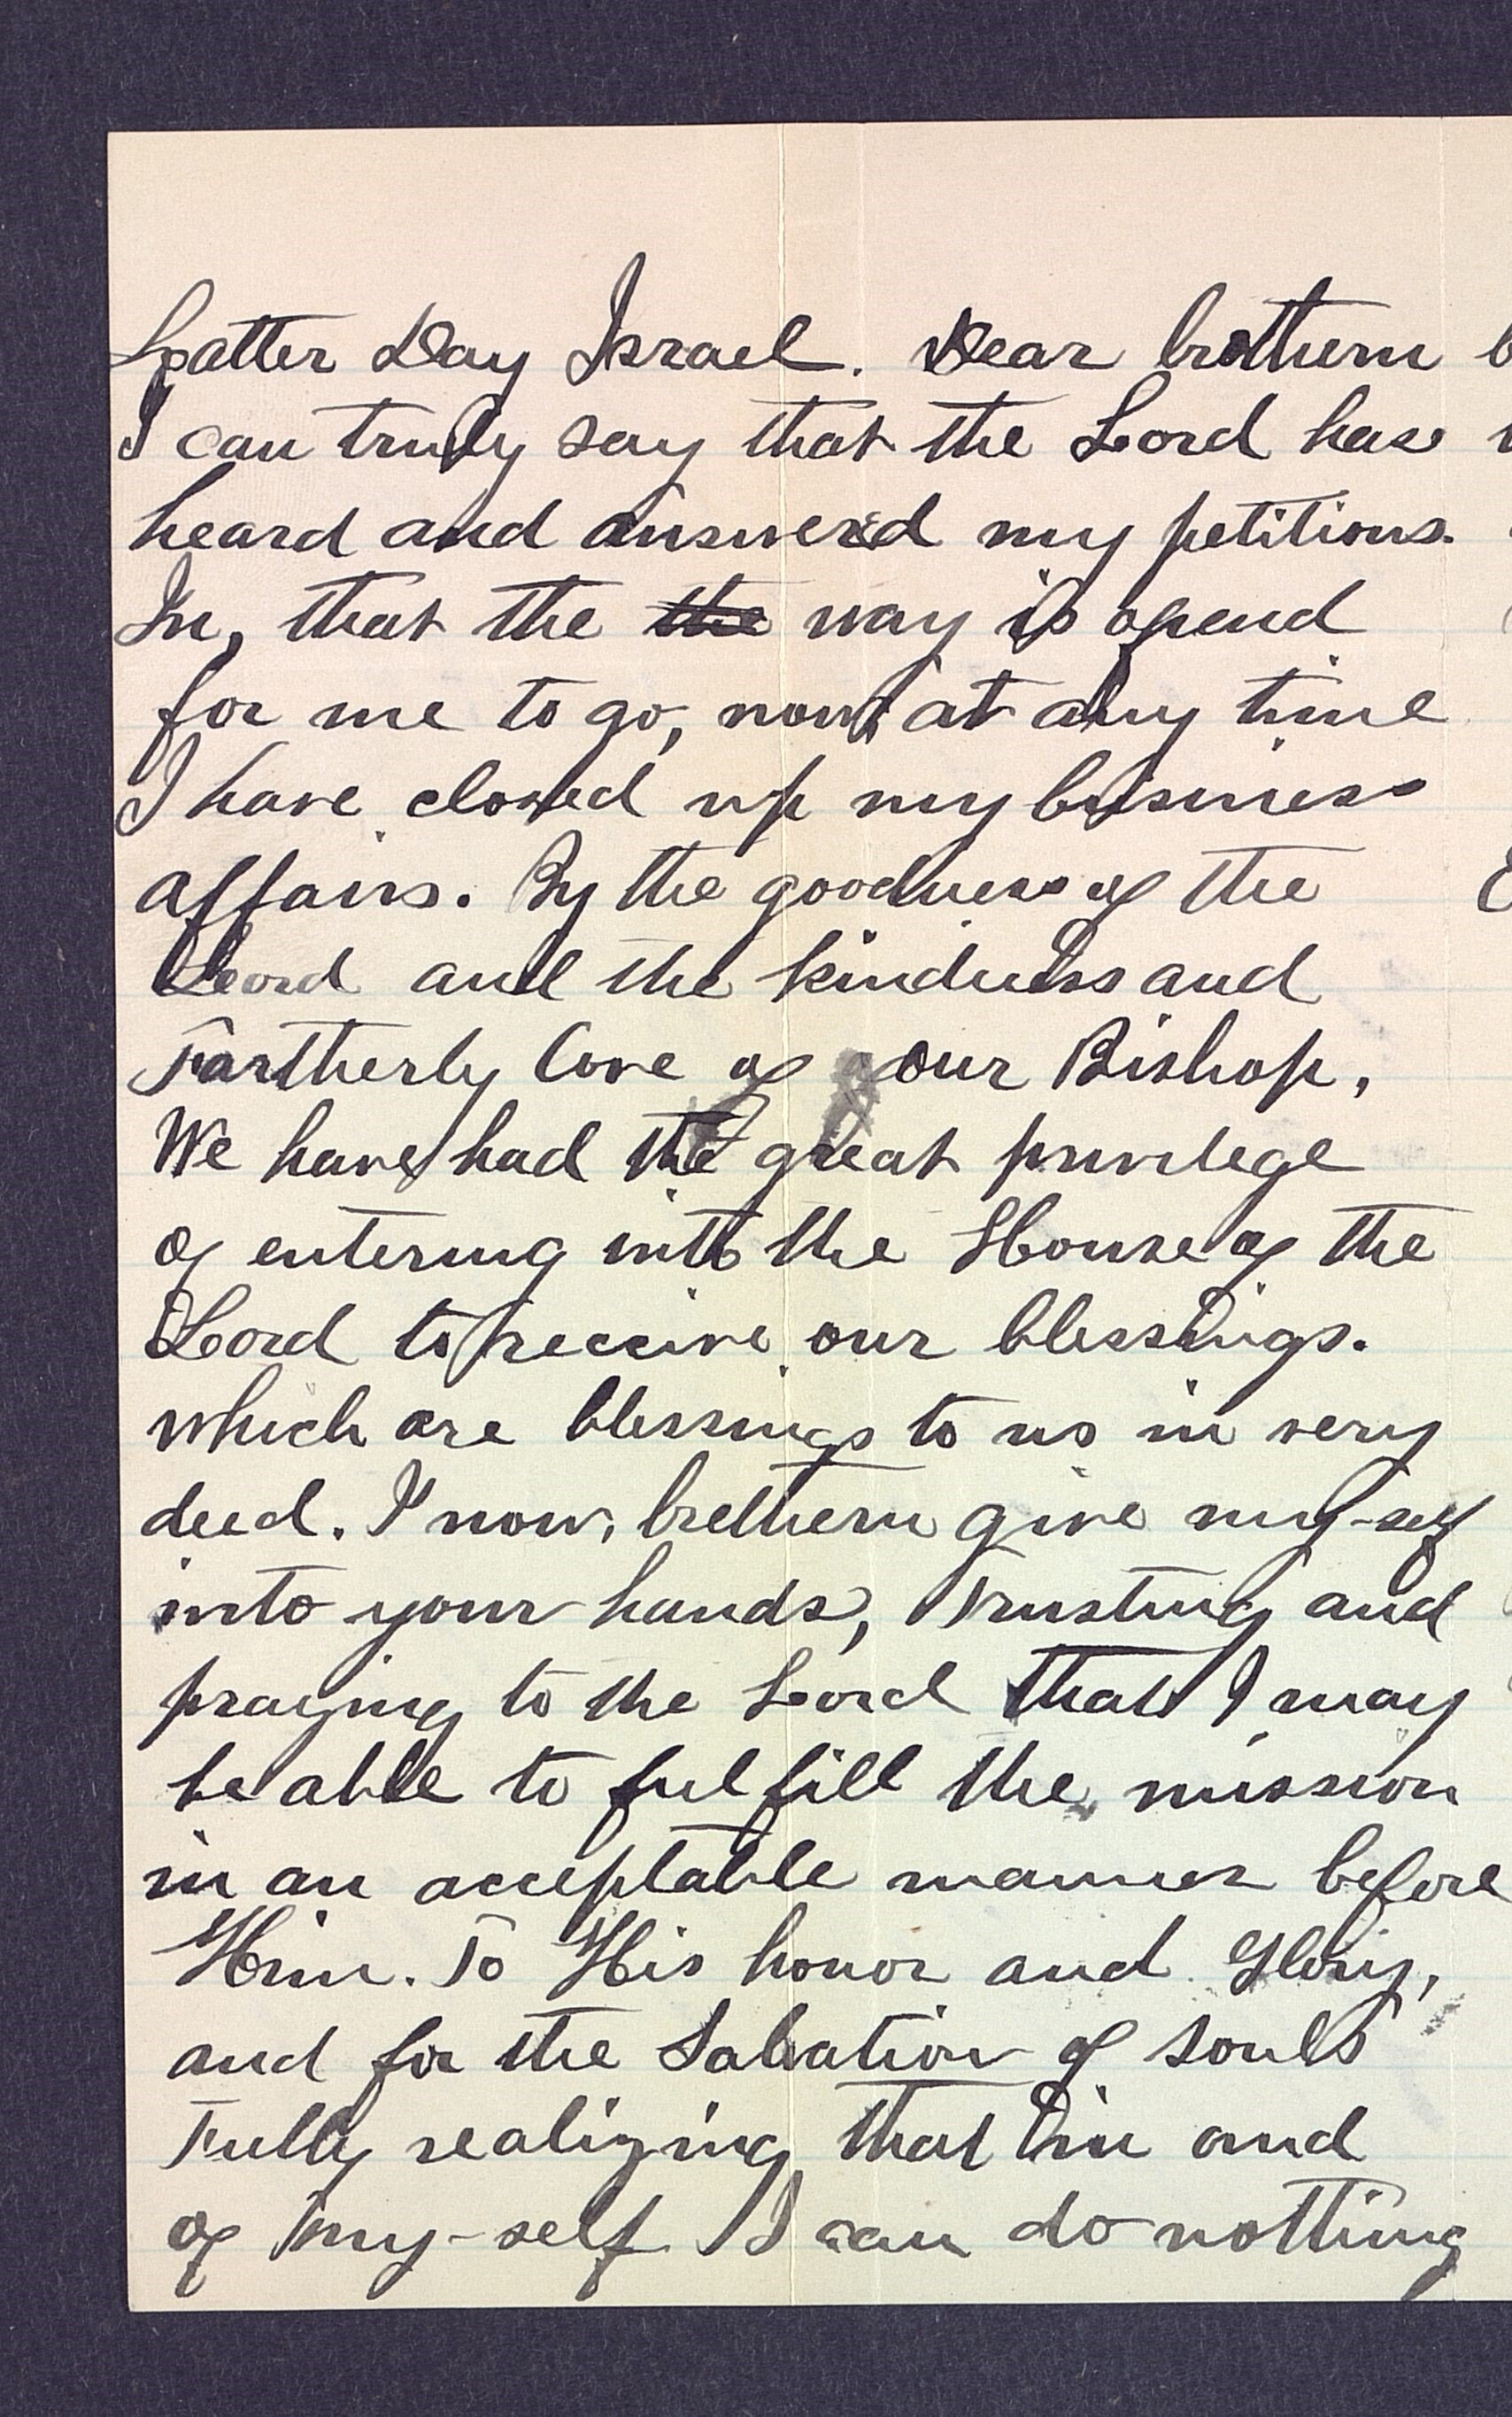 Latter Day Israel. Dear brothern
I can truly say that the Lord has
heard and answered my petitions.
In, that the the way is opend
for me to go, now at any time
I have closed up my business
affairs. By the goodness of the
Lord and the kindness and
Fartherly love of our Bishop,
We have had the great privilege
of entering into the House of the
Lord to receive our blessings.
which are blessings to us in very
deed. I now, brethern give my-self
into your hands, Trusting and
praying to the Lord that I may
be able to fulfill the mission
in an acceptable manner before
Him. To His honor and Glory,
and for the Salvation of souls
Fully realizing that in and
of my-self I can do nothing